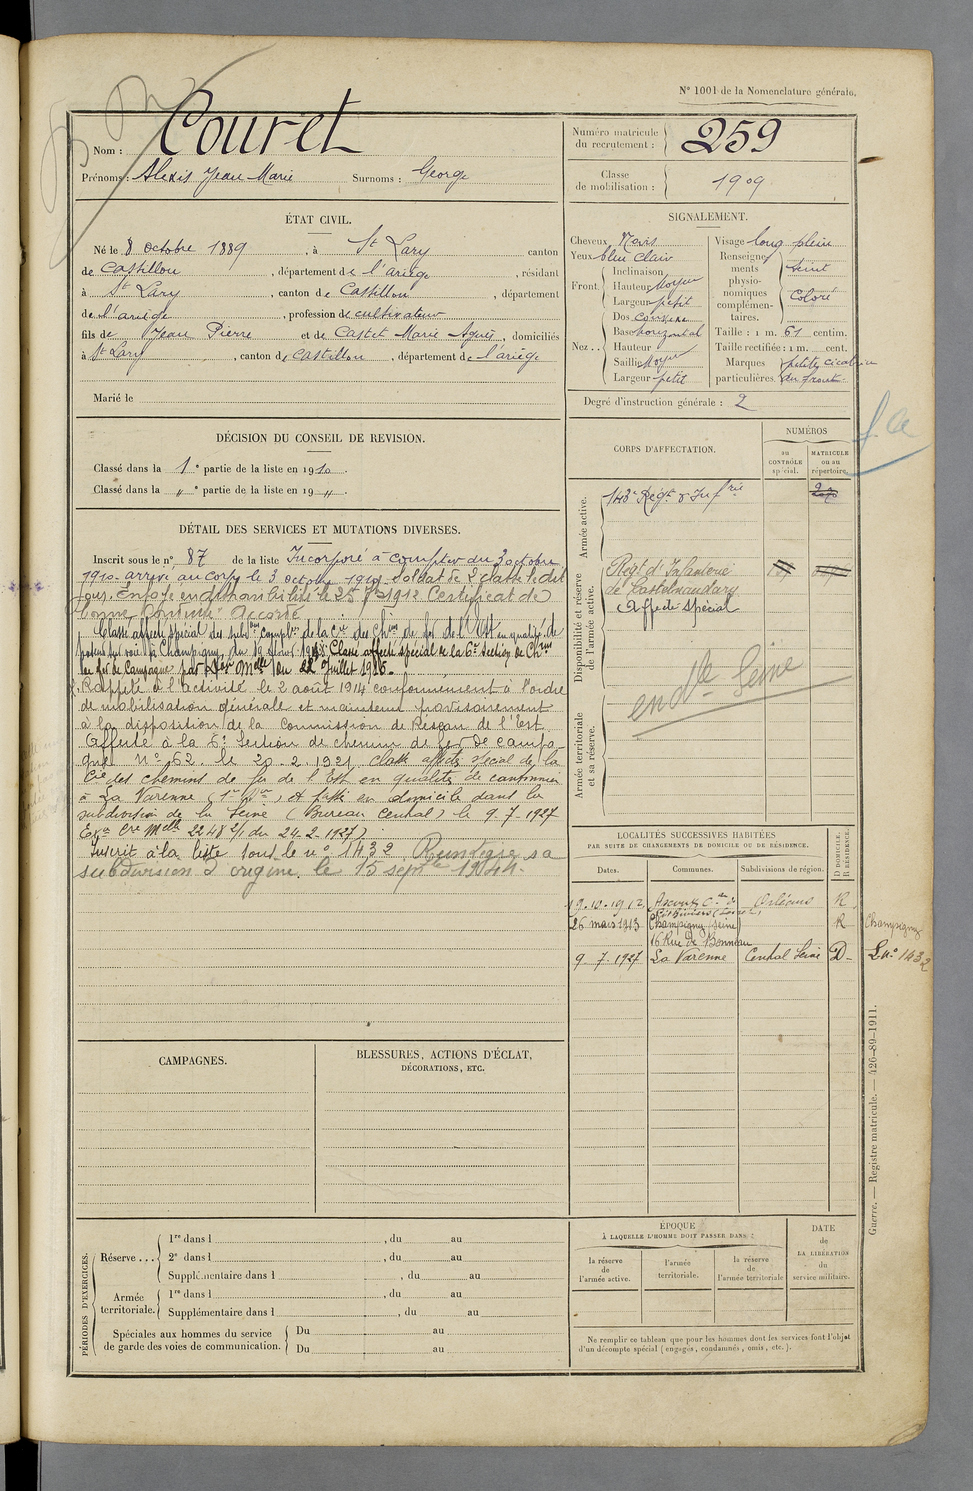 N° 1001 de la Nomenclature générale.
Nom : Couret
Prénoms : Alexis Jean Marie Surnoms : George
Numéro matricule du recrutement : 259
Classe de mobilisation : 1909
ÉTAT CIVIL.
Né le 8 octobre 1889, à St Lary canton
de Castillon, département de l'ariège, résidant
à St Lary, canton de Castillon, département
de l'ariège, profession de cultivateur
fils de Jean Pierre et de Castet Marie Agnès, domiciliés
à St Lary, canton de Castillon, département de l'ariège
Marié le
SIGNALEMENT.
Cheveux Noirs
Yeux bleu clair
Front. Inclinaison
Hauteur Moyen
Largeur petit
Nez. Dos convexe
Base horizontal
Hauteur
Saillie Moyen
Largeur petit
Visage long plein
Renseignements physionomiques complémentaires. teint coloré
Taille : 1 m. 61 centim.
Taille rectifiée : 1 m. cent.
Marques particulières petites cicatrices du front
Degré d'instruction générale : 2
DÉCISION DU CONSEIL DE REVISION.
Classé dans la 1e partie de la liste en 1910.
Classé dans la " e partie de la liste en 19 ".
CORPS D'AFFECTATION.
NUMÉROS
au CONTRÔLE spécial.
MATRICULE ou au répertoire.
Armée active.
143e Régt d'Infrie
Disponibilité et réserve de l'armée active.
Regt d'Infanterie
de Castelnaudary
Affecté Spécial
Armée territoriale et sa réserve.
en dle Seine
DÉTAIL DES SERVICES ET MUTATIONS DIVERSES.
Inscrit sous le n° 87 de la liste Incorporé à compter du 3 octobre
1910. arrivé au corps le 3 octobre 1910. Soldat de 2e classe le dit
jour. Envoyé en disponibilité le 25 7bre 1912 Certificat de
bonne Conduite "Accordé"
Classé affecté spécial des subdons complres de la Cie des Chins de fer de l'Est en qualité de
poseur sur voie à Champigny, du 19
Classé affecté spécial de la 6e Section de Chins
de fer de Campagne par
Melle du 22 Juillet 1915.
Rappelé à l'activité le 2 août 1914 conformément à l'ordre
de mobilisation générale et maintenu provisoirement
à la disposition de la Commission de Réseau de l'Est
Affecté à la 6e Section de chemin de fer de campa-
gne N° 62. le 20.2.1921. classé affecté spécial de la
Cie des chemins de fer de l'Est en qualité de cantonnier
à La Varenne, et passé en domicile dans la
subdivision de la Seine (Bureau Central) le 9.7.1927
Cre Melle 2248 2/1 du 24.2.1927)
Inscrit à la liste sous le n° 1432 Réintégré sa
subdivision d'origine, le 15 septbre 1944.
LOCALITÉS SUCCESSIVES HABITÉES
PAR SUITE DE CHANGEMENTS DE DOMICILE OU DE RÉSIDENCE.
D DOMICILE. R RÉSIDENCE.
Dates. Communes. Subdivisions de région.
19.10.1912 Orléans R
26 mars 1913 Champigny (Seine) R
16 Rue de Bonneau
9.7.1927 La Varenne Central Seine D
Champigny
L n° 1432
CAMPAGNES.
BLESSURES, ACTIONS D'ÉCLAT,
DÉCORATIONS, ETC.
PÉRIODES D'EXERCICES.
Réserve... 1re dans l , du au
2e dans l , du au
Supplémentaire dans l , du au
Armée territoriale. 1re dans l , du au
Supplémentaire dans l , du au
Spéciales aux hommes du service de garde des voies de communication. Du au
Du au
ÉPOQUE
À LAQUELLE L'HOMME DOIT PASSER DANS :
la réserve de l'armée active.
l'armée territoriale.
la réserve de l'armée territoriale
DATE de LA LIBÉRATION du service militaire.
Ne remplir ce tableau que pour les hommes dont les services font l'objet
d'un décompte spécial (engagés, condamnés, omis, etc.).
Guerre. — Registre matricule. — 426-89-1911.